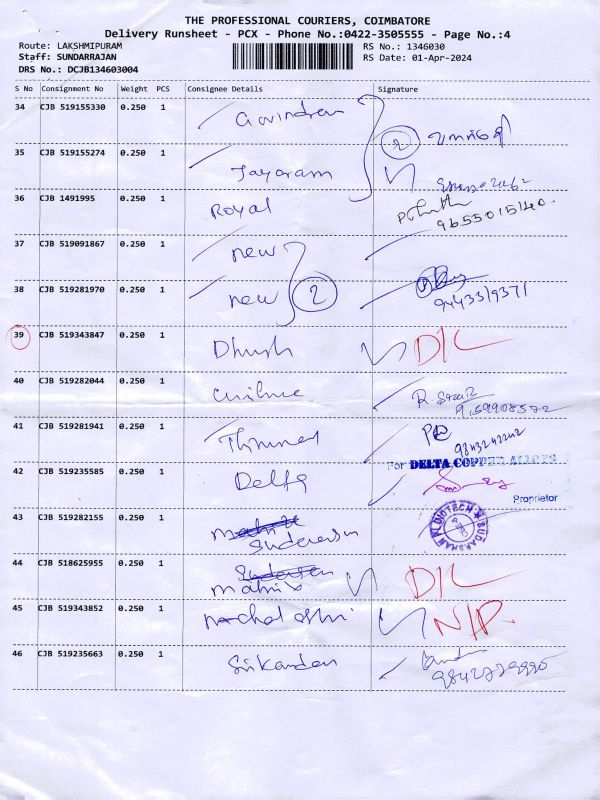 THE PROFESSIONAL COURIERS, COIMBATORE
Delivery Runsheet - PCX - Phone No.:0422-3505555 - Page No.:4
Route: LAKSHMIPURAM
Staff: SUNDARRAJAN
DRS No.: DCJB134603004
RS No.: 1346030
RS Date: 01-Apr-2024
S No Consignment No Weight PCS Consignee Details Signature
34 CJB 519155330 0.250 1 Govindran
2
35 CJB 519155274 0.250 1 Jayaram
36 CJB 1491995 0.250 1 Royal
9655015140
37 CJB 519091867 0.250 1 new
38 CJB 519281970 0.250 1 new 2
9443319371
39 CJB 519343847 0.250 1 Dhush D/L
40 CJB 519282044 0.250 1
9159908572
41 CJB 519281941 0.250 1
9843242242
For DELTA COPPER ALLOYS
42 CJB 519235585 0.250 1 Delta
Proprietor
43 CJB 519282155 0.250 1
44 CJB 518625955 0.250 1 matrix D/L
45 CJB 519343852 0.250 1 N/P.
46 CJB 519235663 0.250 1 Srikandan